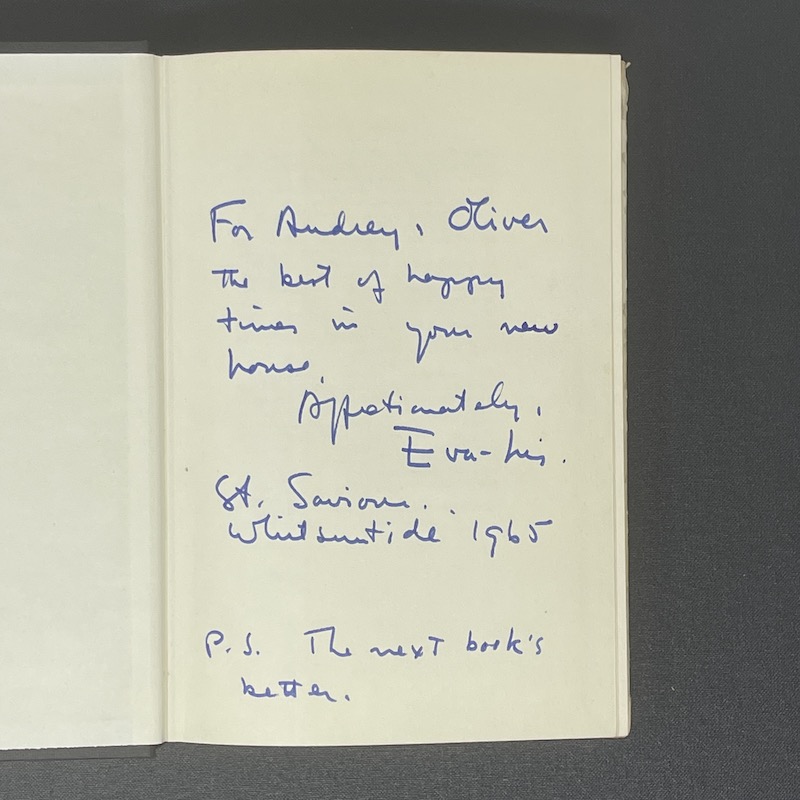 For Audrey, Oliver
The best of happy
times in your new
house.
Affectionately,
Eva-Lis.
St. Saviour.
Whitsuntide 1965
P.S. The next book's
better.